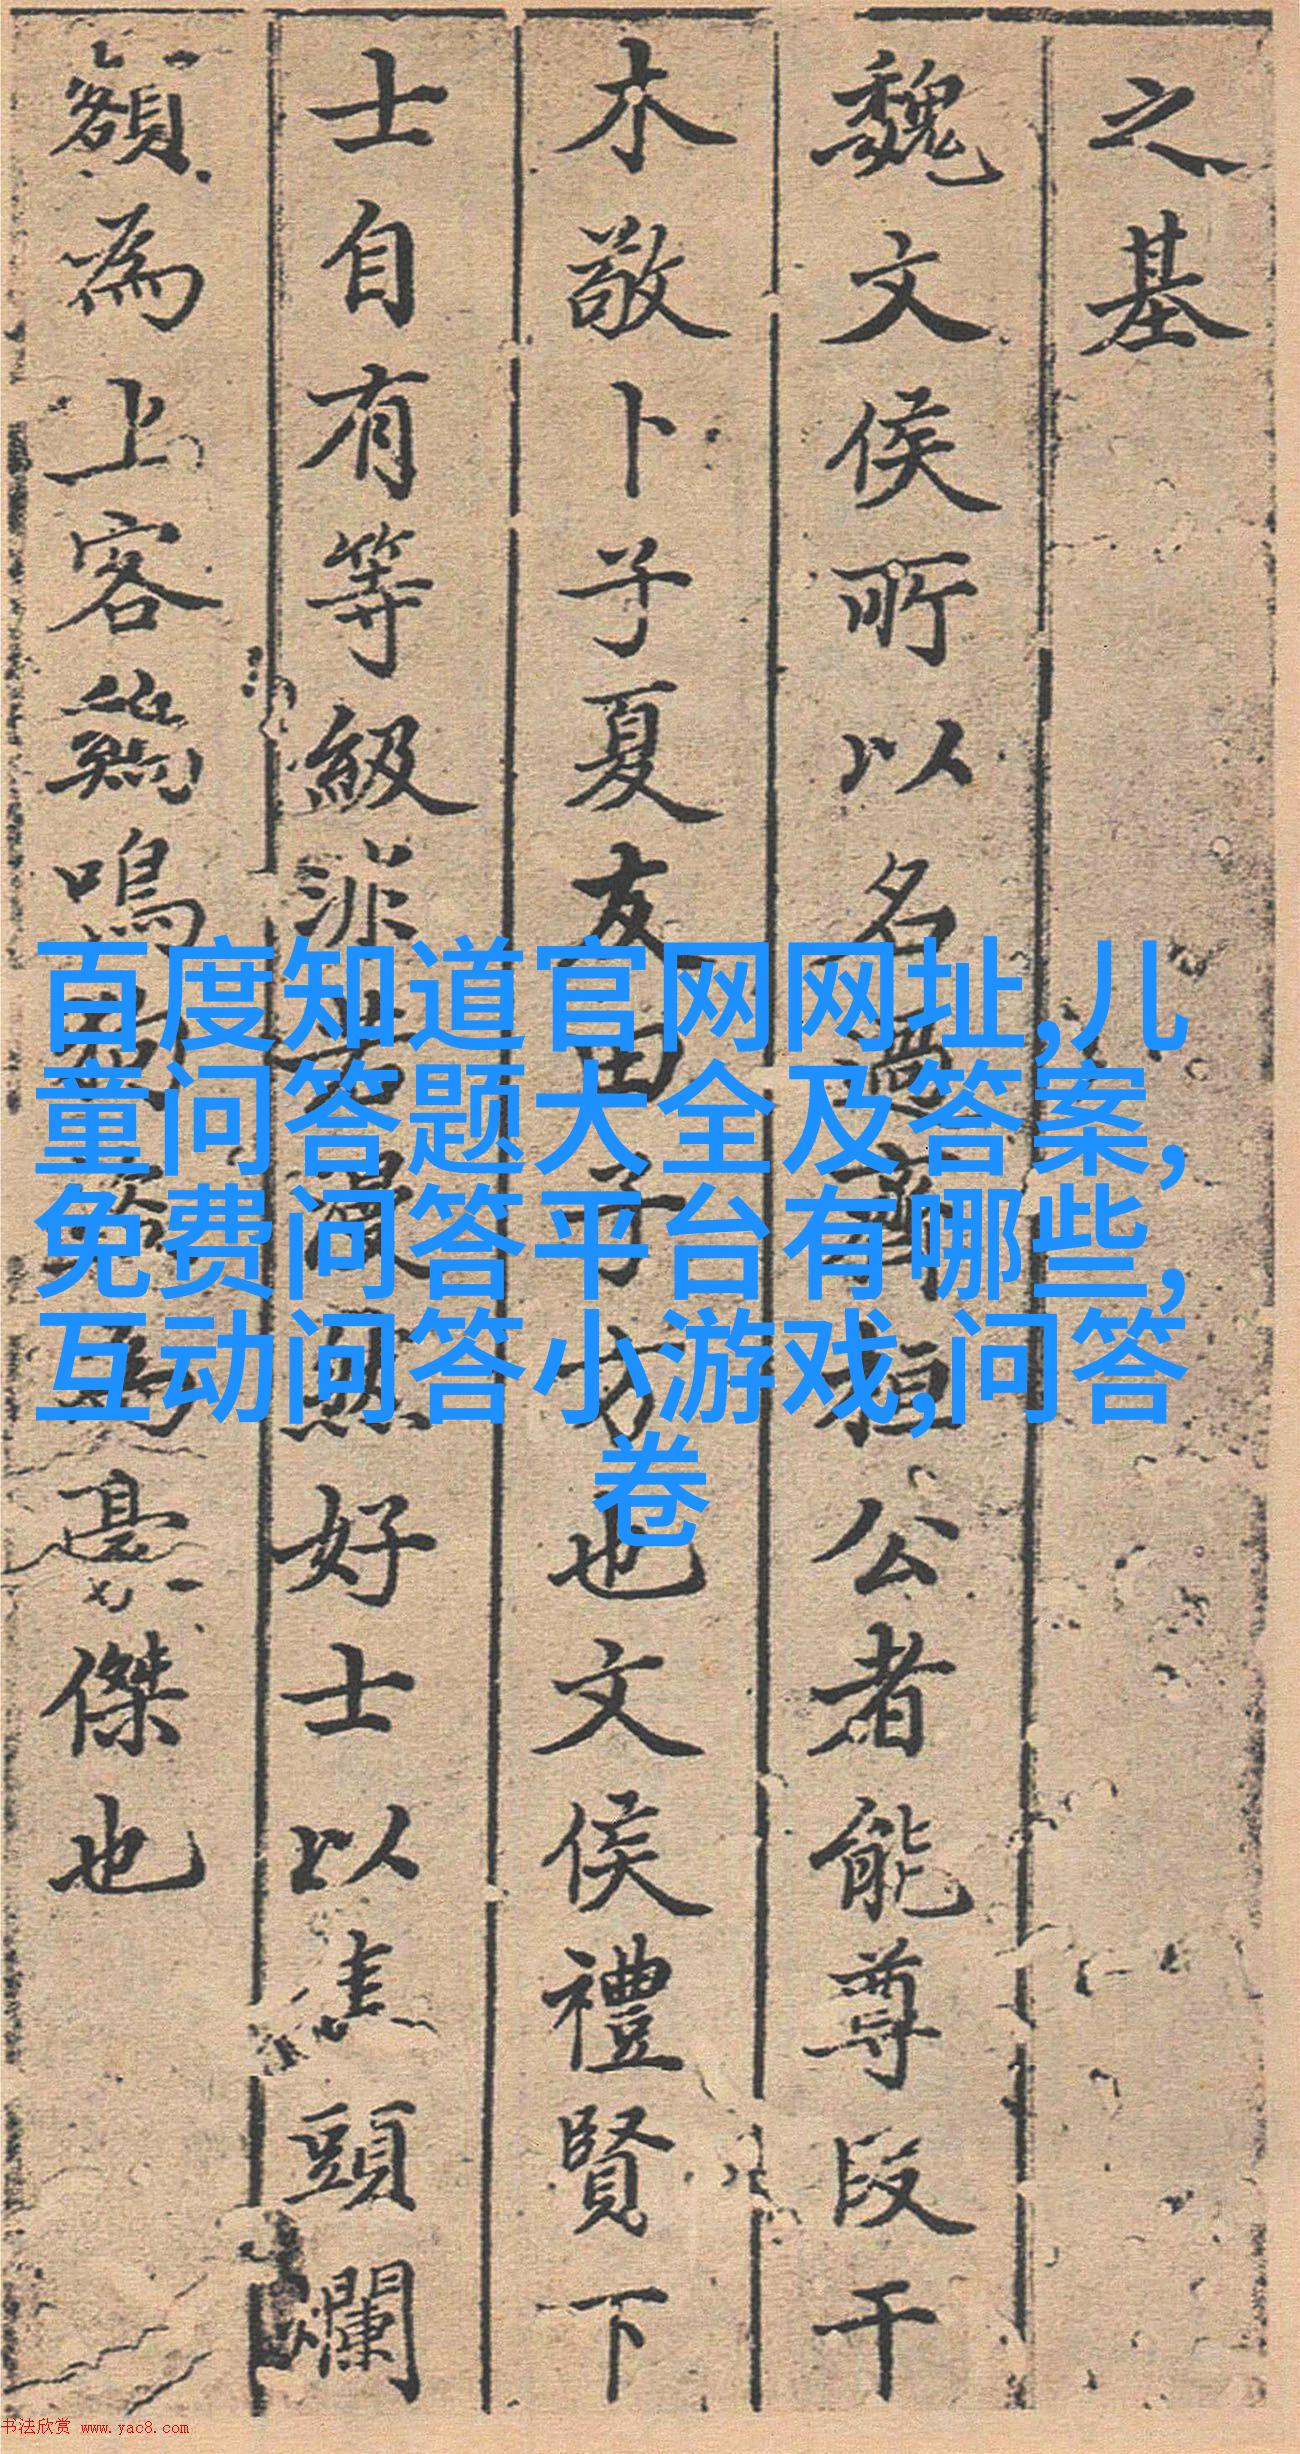 之基
魏文侯所以名過齊桓公者能尊段干
木敬卜子夏友田子方也文侯禮賢下
士自有等級非若漫然好士以焦頭爛
額為上客雞鳴狗盜為豪傑也
百度知道官网网址,儿
童问答题大全及答案,
免费问答平台有哪些,
互动问答小游戏,问答
卷
书法欣赏 www.yac8.com